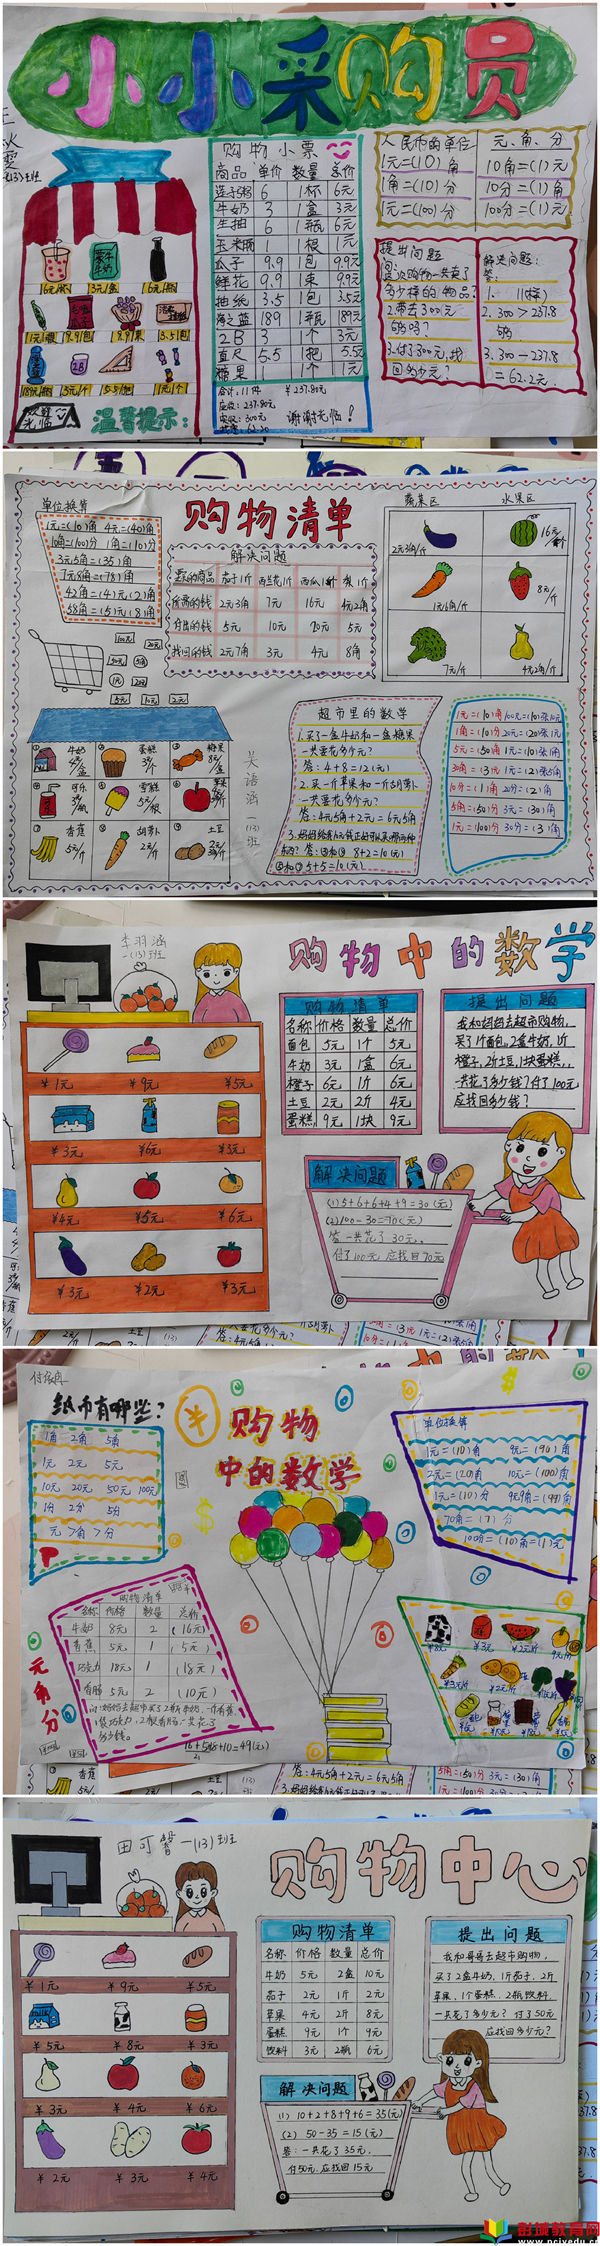 小小采购员
一(13)班
购物小票
商品 单价 数量 总价
莲子粥 6 1杯 6元
牛奶 3 1盒 3元
生抽 6 1瓶 6元
玉米肠 1 1根 1元
瓜子 9.9 1包 9.9元
鲜花 9.9 1束 9.9元
抽纸 3.5 1包 3.5元
海之蓝 189 1瓶 189元
2B 3 1个 3元
直尺 5.5 1把 5.5元
糖果 1 1个 1元
合计:11件 ¥237.80元
应收:237.80元
实收:300元
谢谢光临!
人民币的单位 元、角、分
1元=(10)角 10角=(1)元
1角=(10)分 10分=(1)角
1元=(100)分 100分=(1)元
提出问题
问:
1.这次购物一共买了
多少样的物品?
2.带去300元
够吗?
3.付了300元,找
回多少元?
解决问题:
答:
1. 11(样)
2. 300>237.8
够
3. 300-237.8
=62.2元.
6元/杯 3元/盒 6元/瓶
1元/根 9.9/包 9.9/束 3.5/包
189元/瓶 3元/个 5.5/把 1元/个
欢迎光临
温馨提示:
购物清单
单位换算
1元=(10)角 4元=(40)角
10角=(100)分 1角=(10)分
3元5角=(35)角
7元8角=(78)角
42角=(4)元(2)角
58角=(5)元(8)角
解决问题
要买的商品 茄子1斤 西兰花1斤 西瓜1个 梨1斤
所需的钱 2元3角 7元 16元 4元2角
付出的钱 5元 10元 20元 5元
找回的钱 2元7角 3元 4元 8角
蔬菜区 水果区
2元3角/斤 16元/个
1元6角/斤 8元/斤
7元/斤 4元2角/斤
100元 20元
50元 5角
1元 2元
5元 10元 2元
牛奶 4元/盒 蛋糕 3元/个 糖果 8元/盒
可乐 3元/瓶 雪糕 5元/根 苹果
香蕉 5元/斤 胡萝卜 2元/斤 土豆
吴语涵
一(13)班
超市里的数学
1.买了一盒牛奶和一盒糖果
一共要花多少元?
答:4+8=12(元)
2.买一斤苹果和一斤胡萝卜
一共要花多少元?
答:4元5角+2元=6元5角
8+2=10(元)
5+5=10(元)
1元=(10)角 100元=(10)张10元
1角=(10)分 20元=(20)张1元
5元=(50)角 1元=(10)张1角
30角=(3)元 1元=(2)张5角
10分=(1)角 20分=(2)角
5角=(50)分 3元=(30)角
1元=(100)分 30分=(3)角
李羽涵
一(13)班
购物中的数学
购物清单
名称 价格 数量 总价
面包 5元 1个 5元
牛奶 3元 1盒 6元
橙子 6元 1斤 6元
土豆 2元 2斤 4元
蛋糕 9元 1块 9元
提出问题
我和妈妈去超市购物,
买了1个面包,2盒牛奶,1斤
橙子,2斤土豆,1块蛋糕,
一共花了多少钱?付了100元
应找回多少钱?
¥1元 ¥9元 ¥5元
¥3元 ¥6元 ¥3元
¥4元 ¥5元 ¥6元
¥3元 ¥2元 ¥3元
解决问题
(1)5+6+6+4+9=30(元)
(2)100-30=70(元)
答:一共花了30元.
付了100元 应找回70元
纸币有哪些?
1角 2角 5角
1元 2元 5元
10元 20元 50元 100元
1分 2分 5分
元>角>分
¥
购物
中的数学
单位换算
1元=(10)角 9元=(90)角
2元=(20)角 10元=(100)角
1元=(10)分 9元9角=(99)角
70角=(7)分
100分=(10)角=(1)元
元角分
购物清单
名称 价格 数量 总价
牛奶 8元 2 (16元)
香蕉 5元 1 (5元)
巧克力 18元 1 (18元)
香肠 5元 2 (10元)
16+5+18+10=49(元)
田可馨 一(13)班
购物中心
购物清单
名称 价格 数量 总价
牛奶 5元 2盒 10元
茄子 2元 1斤 2元
苹果 4元 2斤 8元
蛋糕 9元 1个 9元
饮料 3元 2瓶 6元
提出问题
我和哥哥去超市购物,
买了2盒牛奶,1斤茄子,2斤
苹果,1个蛋糕,2瓶饮料,
一共花了多少元?付了50元
应找回多少元?
¥1元 ¥9元 ¥5元
¥5元 ¥8元 ¥3元
¥3元 ¥4元 ¥6元
¥2元 ¥3元 ¥4元
解决问题
(1) 10+2+8+9+6=35(元)
(2) 50-35=15(元)
答:一共花了35元,
付50元,应找回15元
彭城教育网
www.pcjyedu.cn